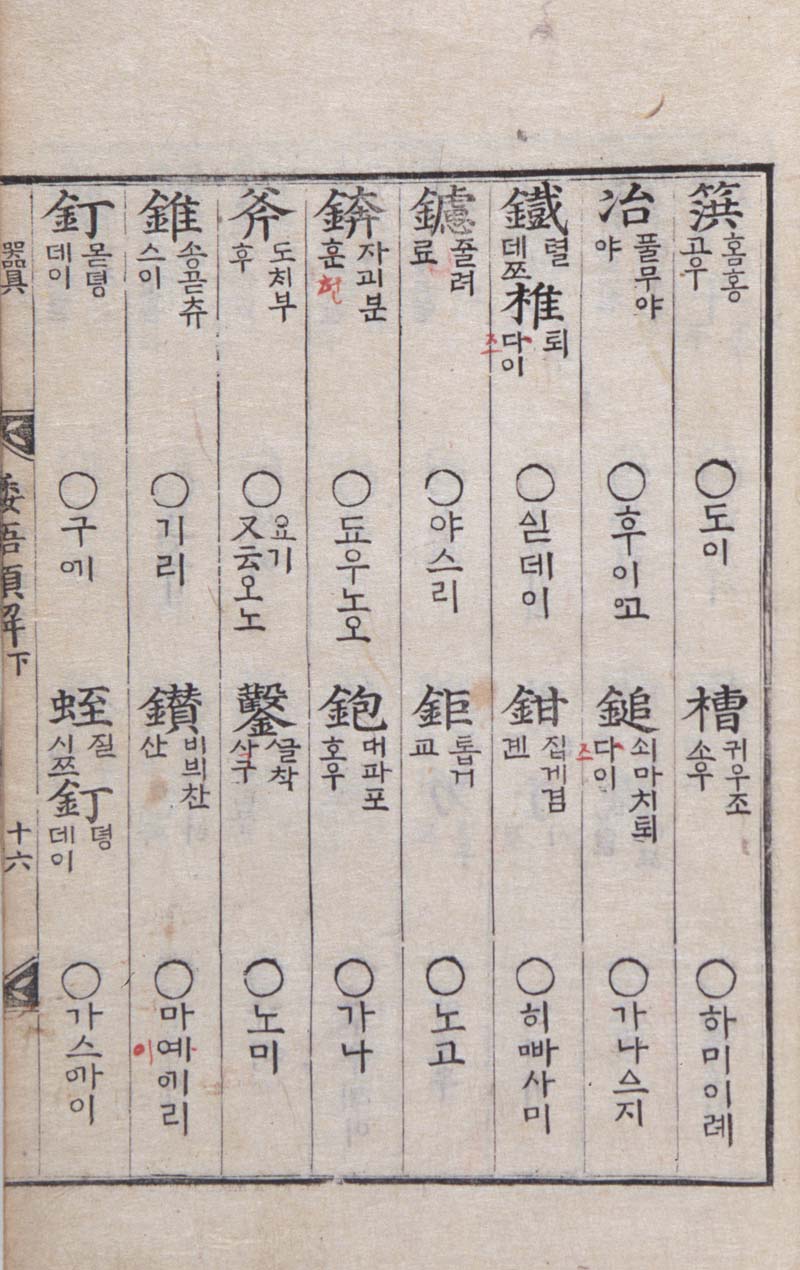 篊 홈홍 고우 ○도이
槽 귀우조 소우 ○하미이례
冶 풀무야 야 ○후이ᅌ고
鎚 쇠마치퇴 다이 조 ○가나스지
鐵 텰 데쯔 椎 퇴 다이 조 ○싣데이
鉗 집게겸 겐 ○히ᄲᅡ사미
鑢 줄려 료 ○야스리
鉅 톱거 교 ○노고
錛 자괴분 훈 헌 ○됴우노오
鉋 대파포 호우 ○가나
斧 도치부 후 ○요기 又云오노
鑿 ᄭᅳᆯ착 사구 ○노미
錐 송곧츄 스이 ○기리
鑽 비븨찬 산 ○마예ᅌ기리 이
釘 몯뎡 데이 ○구ᅌ게
蛭 질 시쯔 釘 뎡 데이 ○가스ᅌ가이
器具
倭語類解下
十六